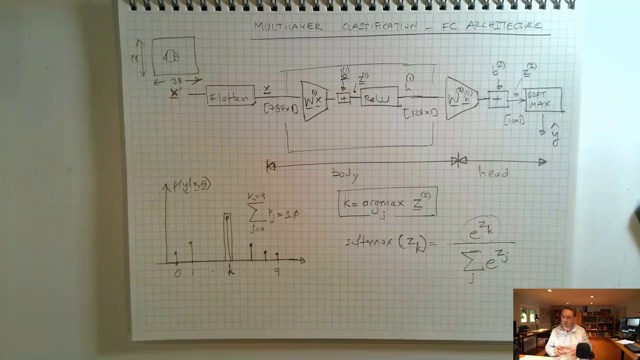 MULTILAYER CLASSIFICATION - FC ARCHITECTURE
28
28
x' Flatten x [784x1] W^(1) x + b^(1) z^(1) ReLU h^(1) [128x1] W^(2) h^(1) + b^(2) z^(2) [10x1] SOFT MAX ŷ
body head
p(y|x,θ)
K=9 ∑ j=0 P_j = 1.0
0 1 k 9
k = argmax_j z^(2)
softmax (z_k) = e^{z_k} / ∑_j e^{z_j}